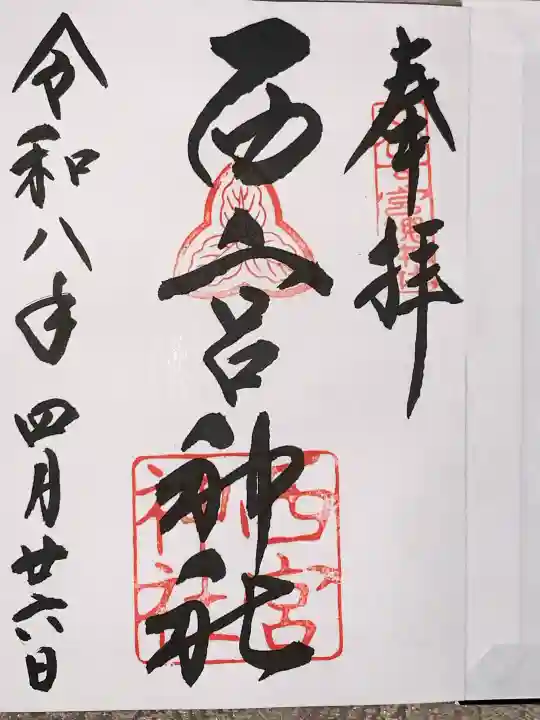 奉拝
西宮神社
西宮
神社
令和八年四月廿六日